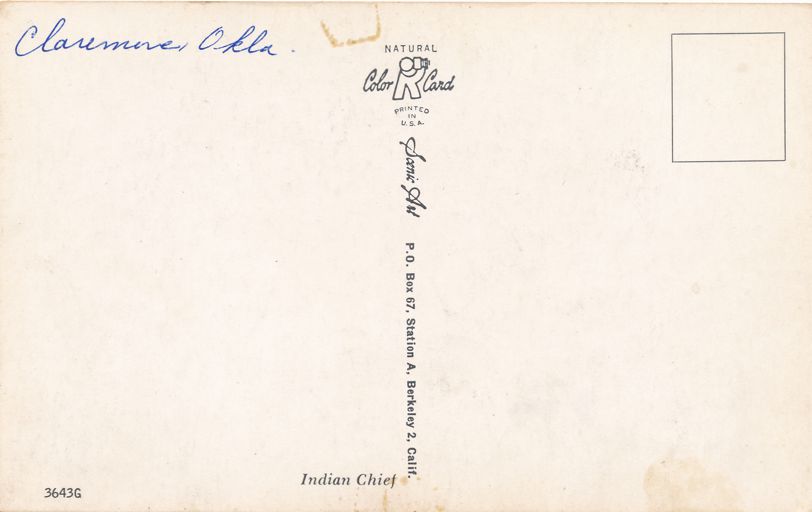 Claremore, Okla.
NATURAL
Color R Card
PRINTED
IN
U.S.A.
Scenic Art
P.O. Box 67, Station A, Berkeley 2, Calif.
Indian Chief
3643G